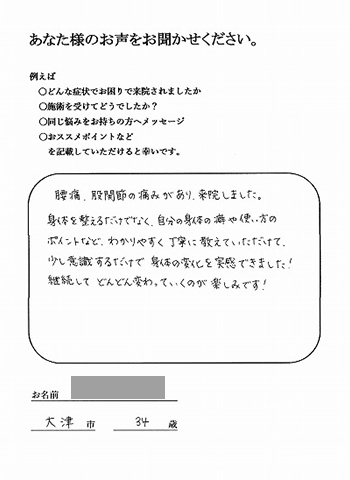 あなた様のお声をお聞かせください。
例えば
○どんな症状でお困りで来院されましたか
○施術を受けてどうでしたか？
○同じ悩みをお持ちの方へメッセージ
○おススメポイントなど
を記載していただけると幸いです。
腰痛、股関節の痛みがあり、来院しました。
身体を整えるだけでなく、自分の身体の癖や使い方の
ポイントなど、わかりやすく丁寧に教えていただけて、
少し意識するだけで身体の変化を実感できました！
継続してどんどん変わっていくのが楽しみです！
お名前
大津 市 34 歳